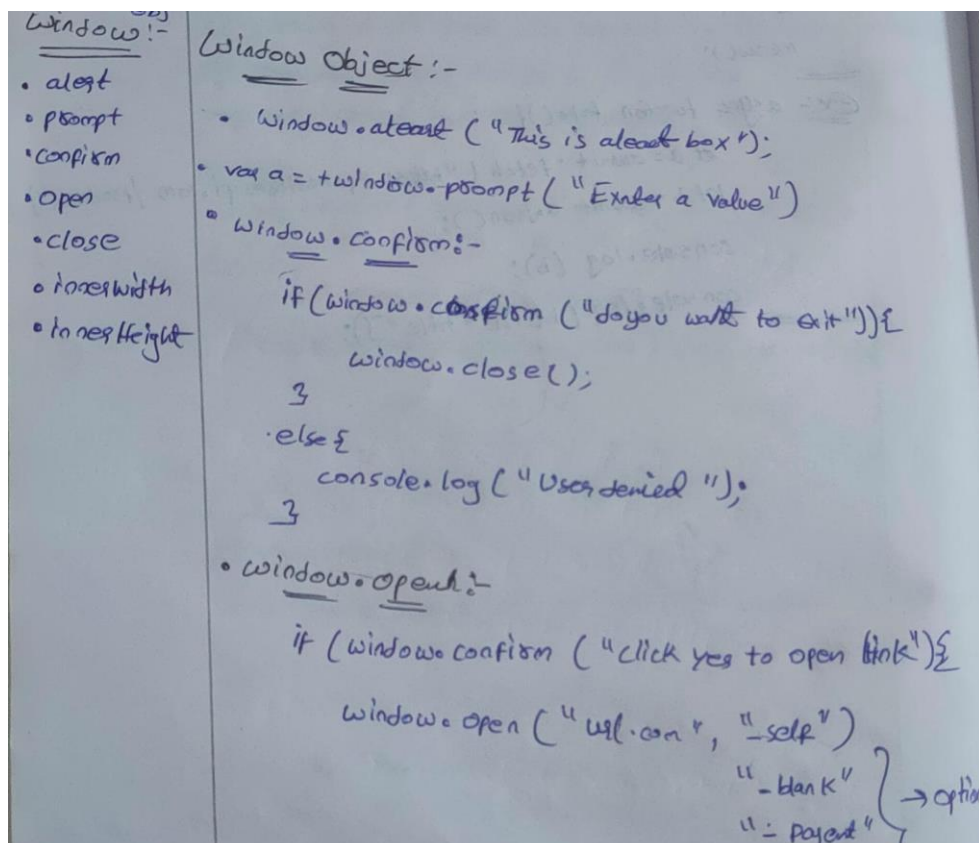 Window:-
• alert
• prompt
• confirm
• open
• close
• innerwidth
• innerHeight
Window Object :-
• window.aleart ("This is aleart box");
• var a = +window.prompt ("Exnter a value")
• window.confirm:-
if (window.confirm ("do you want to exit")){
window.close();
}
else {
console.log ("User denied ");
}
• window.open:-
if (window.confirm ("click yes to open link"){
window.open ("url.com", "_self")
"_blank"
→ optio
"_parent"